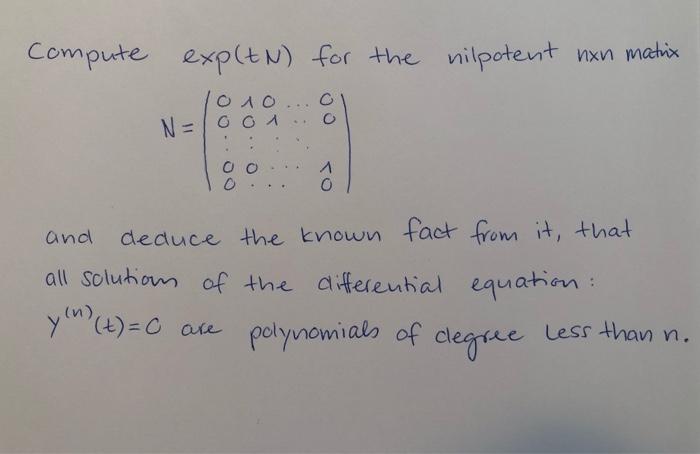 Compute exp(tN) for the nilpotent nxn matrix
N = ( 0 1 0 ... 0
0 0 1 .. 0
: : : .
0 0 ... 1
0 ... 0 )
and deduce the known fact from it, that
all solutions of the differential equation :
y^(n)(t)=0 are polynomials of degree less than n.